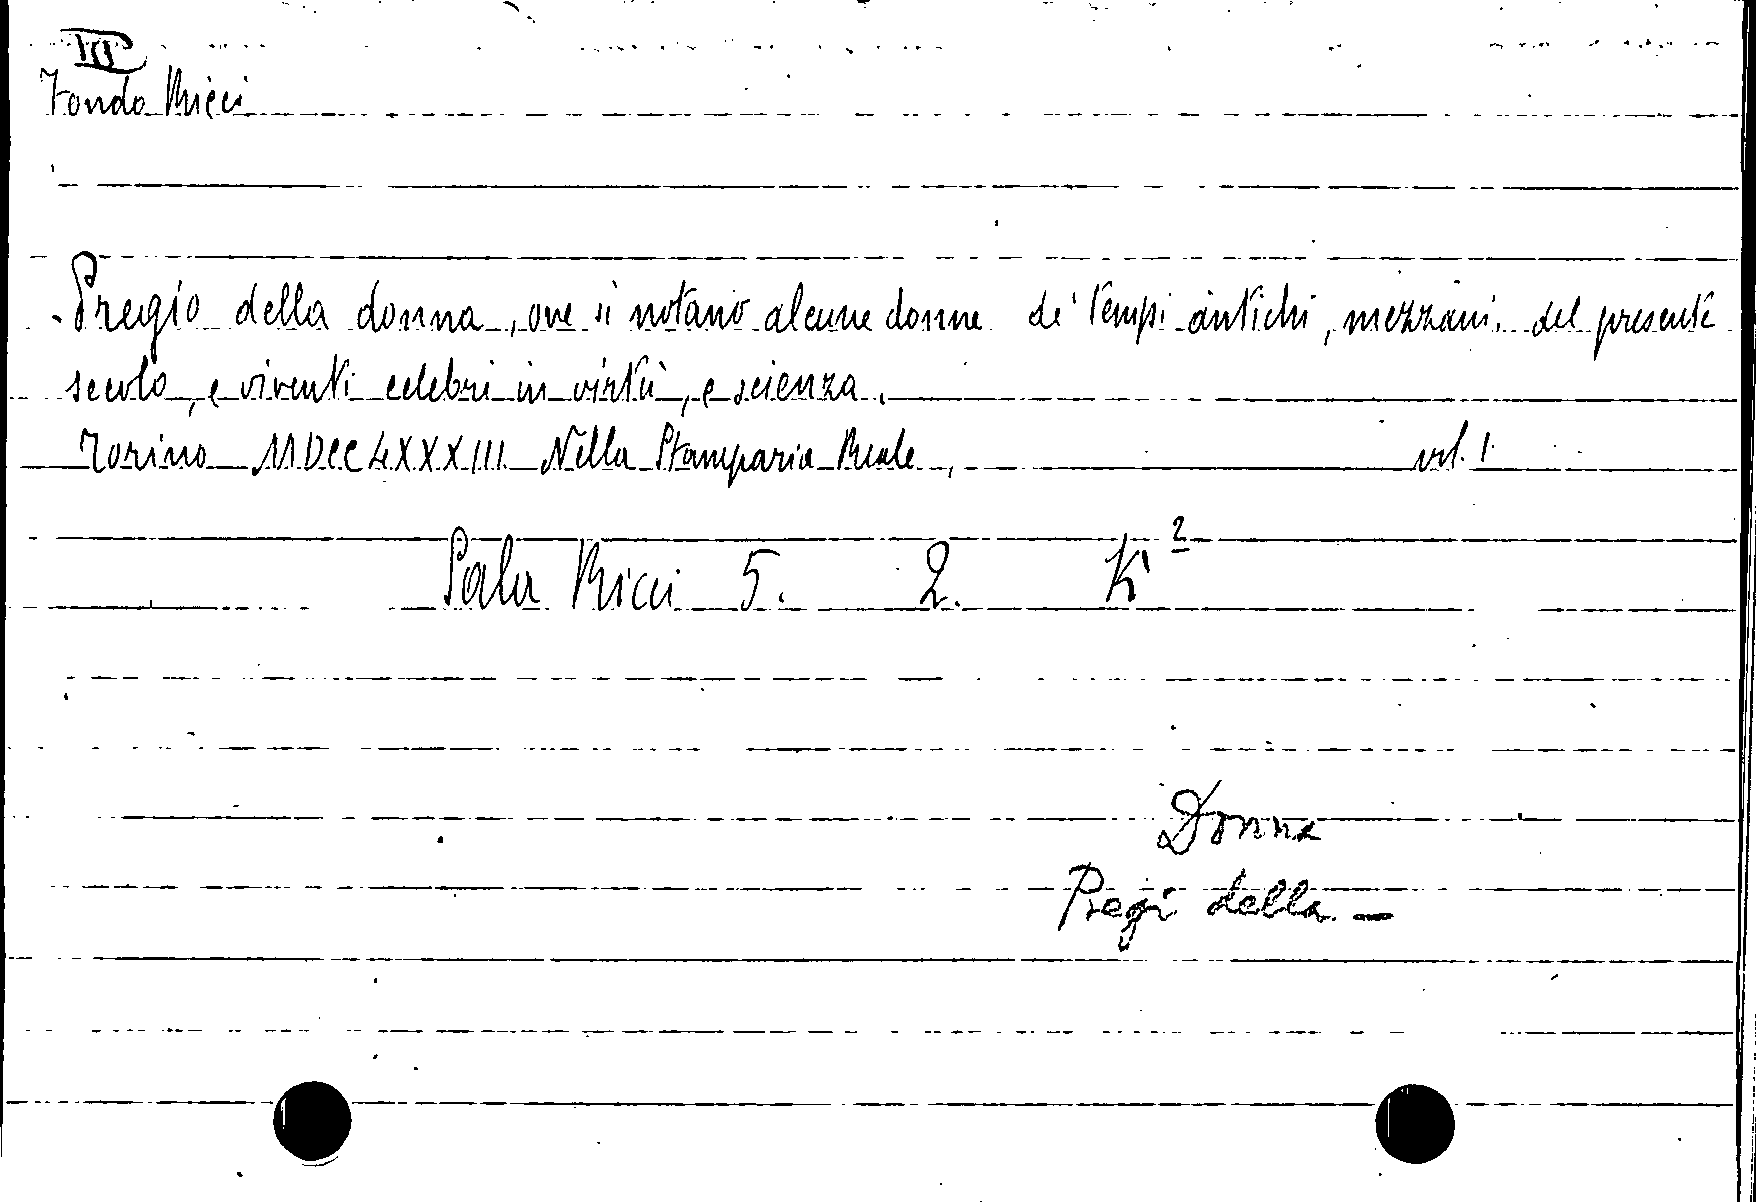 III
Fondo Ricci
Pregio della donna, ove si notano alcune donne de' tempi antichi, mezzani, del presente
secolo, e viventi celebri in virtù, e scienza.
Torino MDCCLXXXIII Nella Stamparia Reale, vol. 1
Sala Ricci 5. 2. K²
Donna
Pregi della —